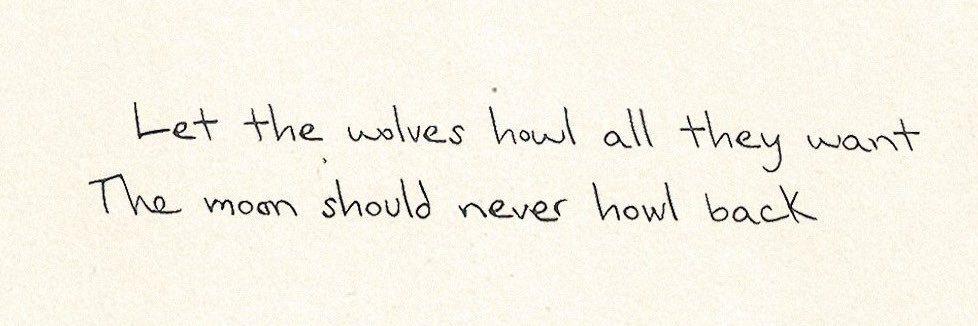 Let the wolves howl all they want
The moon should never howl back